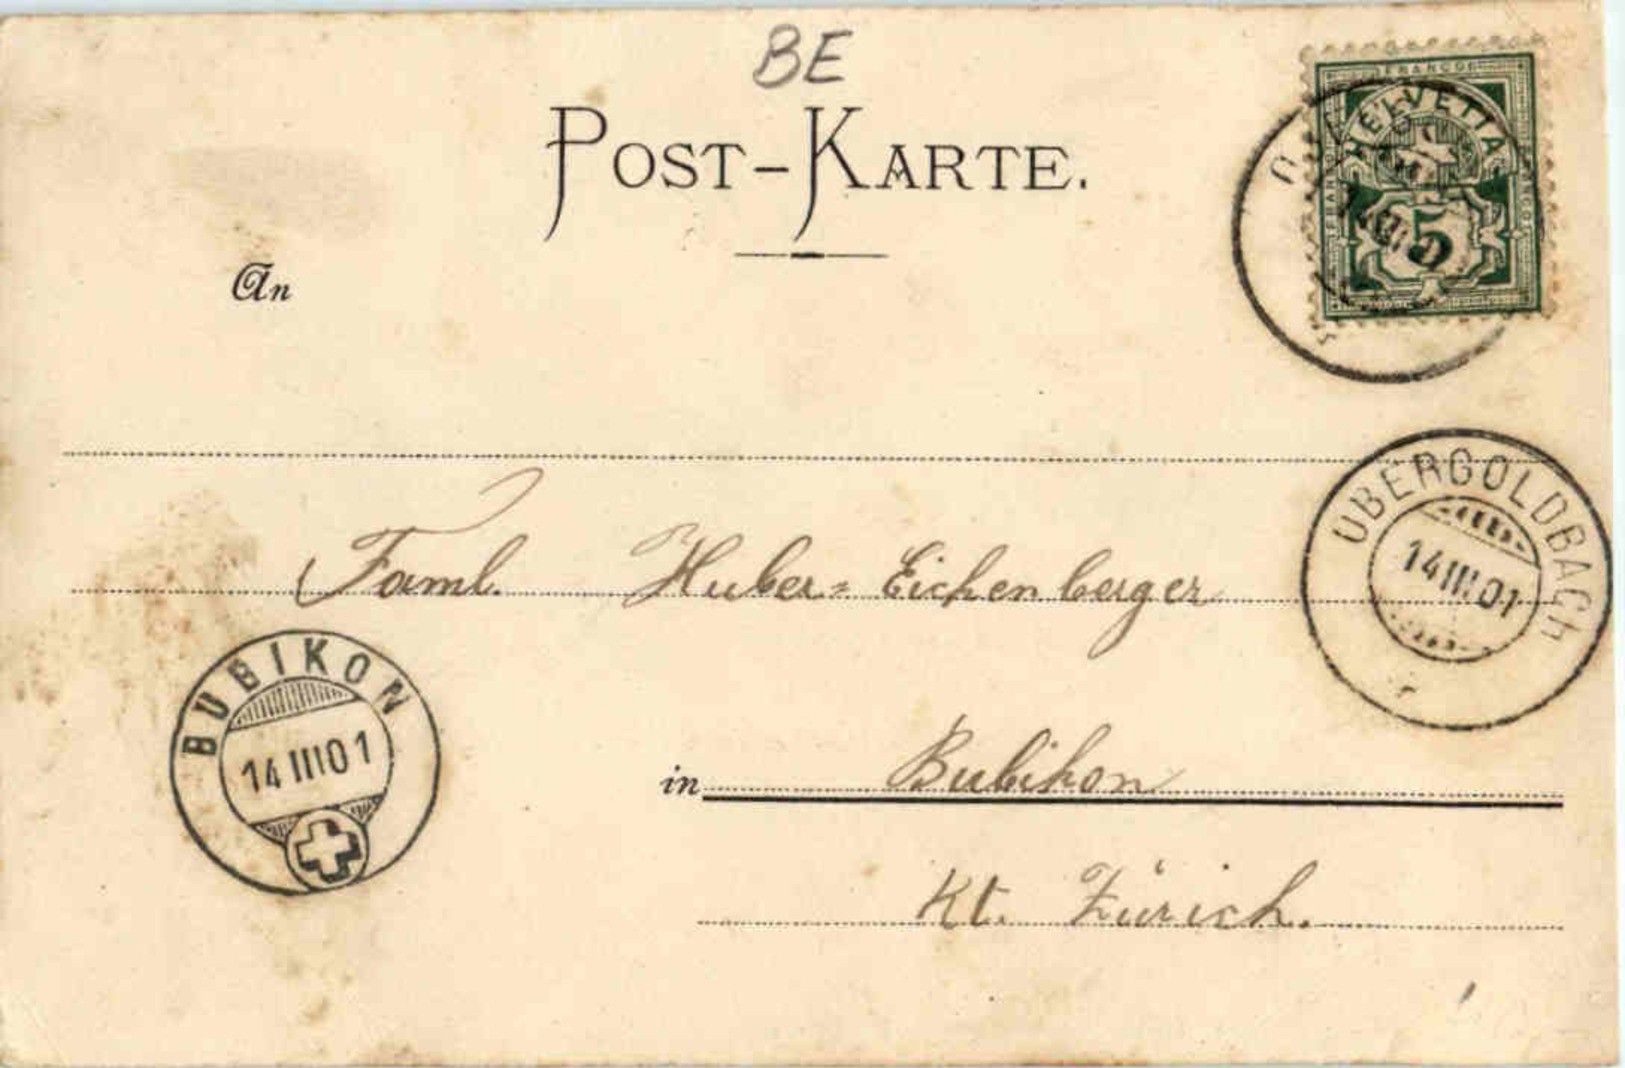 BE
POST-KARTE.
FRANCO
HELVETIA
5
An
UBERGOLDBACH
14 III 01
Faml. Huber=Eichenberger
BUBIKON
14 III 01
in Bubikon
Kt. Zürich.